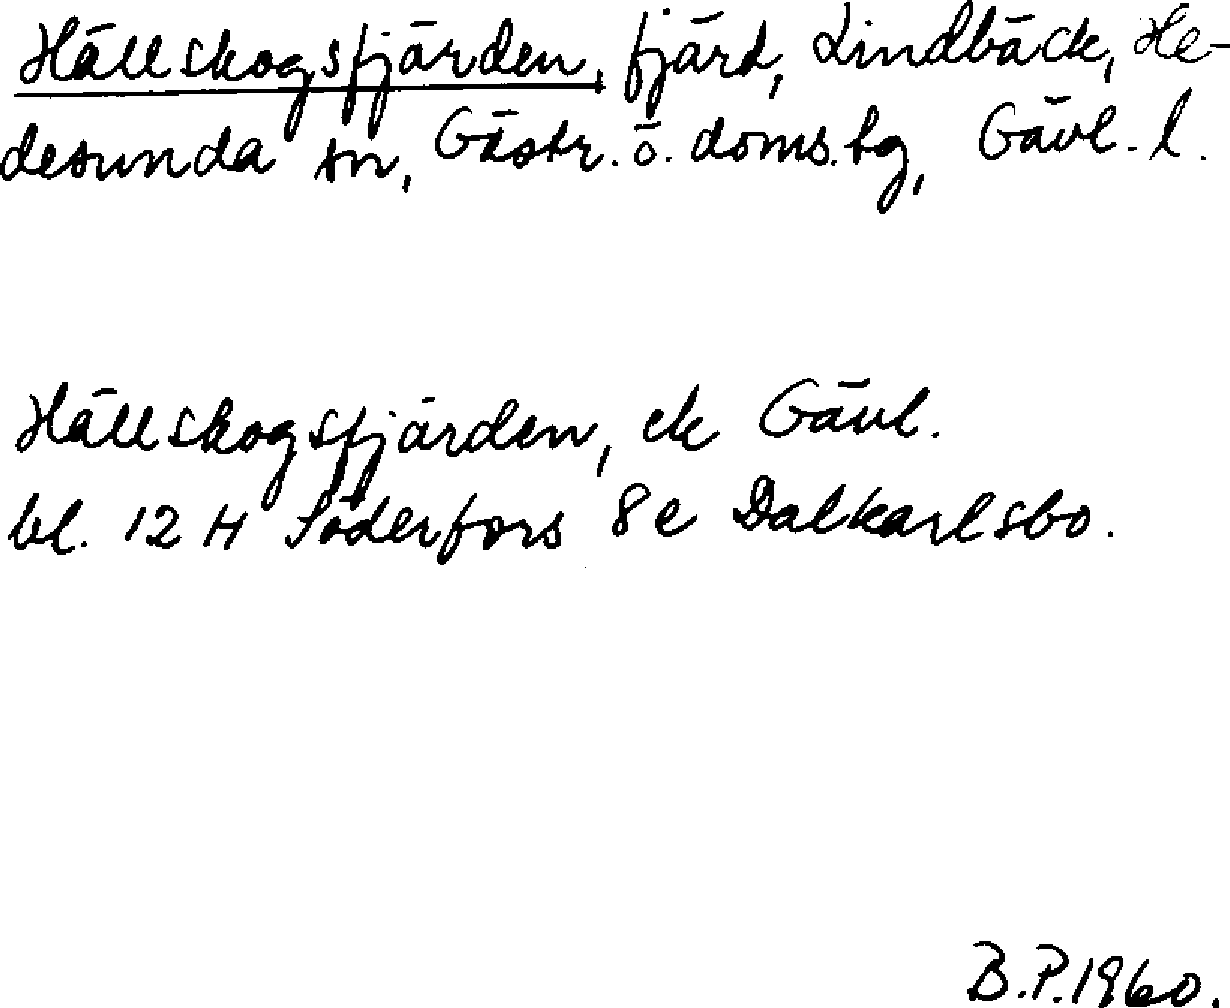 Hällskogsfjärden, fjärd, Lindbäck, He-
desunda sn, Gästr. ö. doms.tg, Gävl. l.
Hällskogsfjärden, ek Gävl.
bl. 12 H Söderfors 8 e Dalkarlsbo.
B.P.1960.